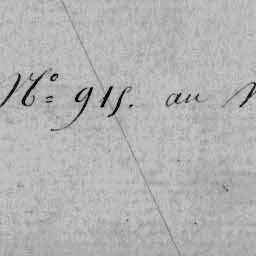 Nº 915. au